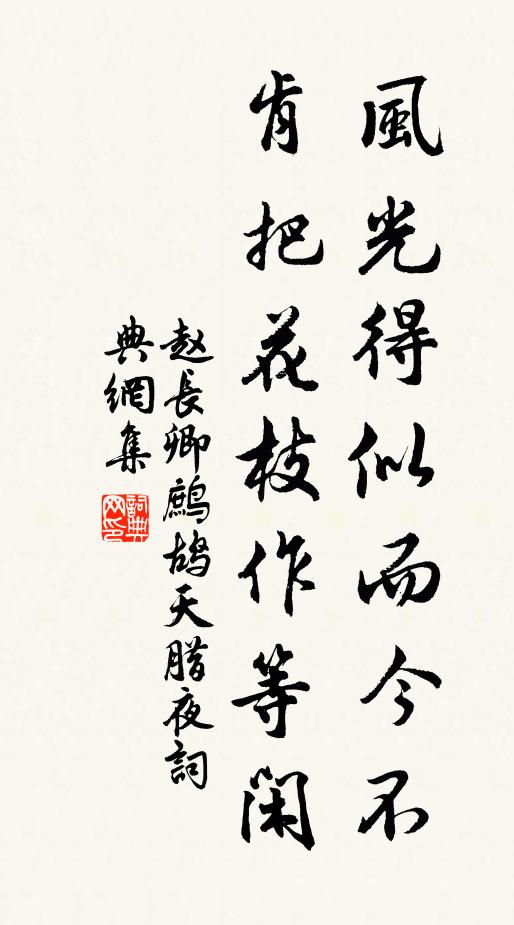 風光得似而今不
肯把花枝作等閑
赵長卿鷓鴣天腊夜詞
典網集
詞典
网印